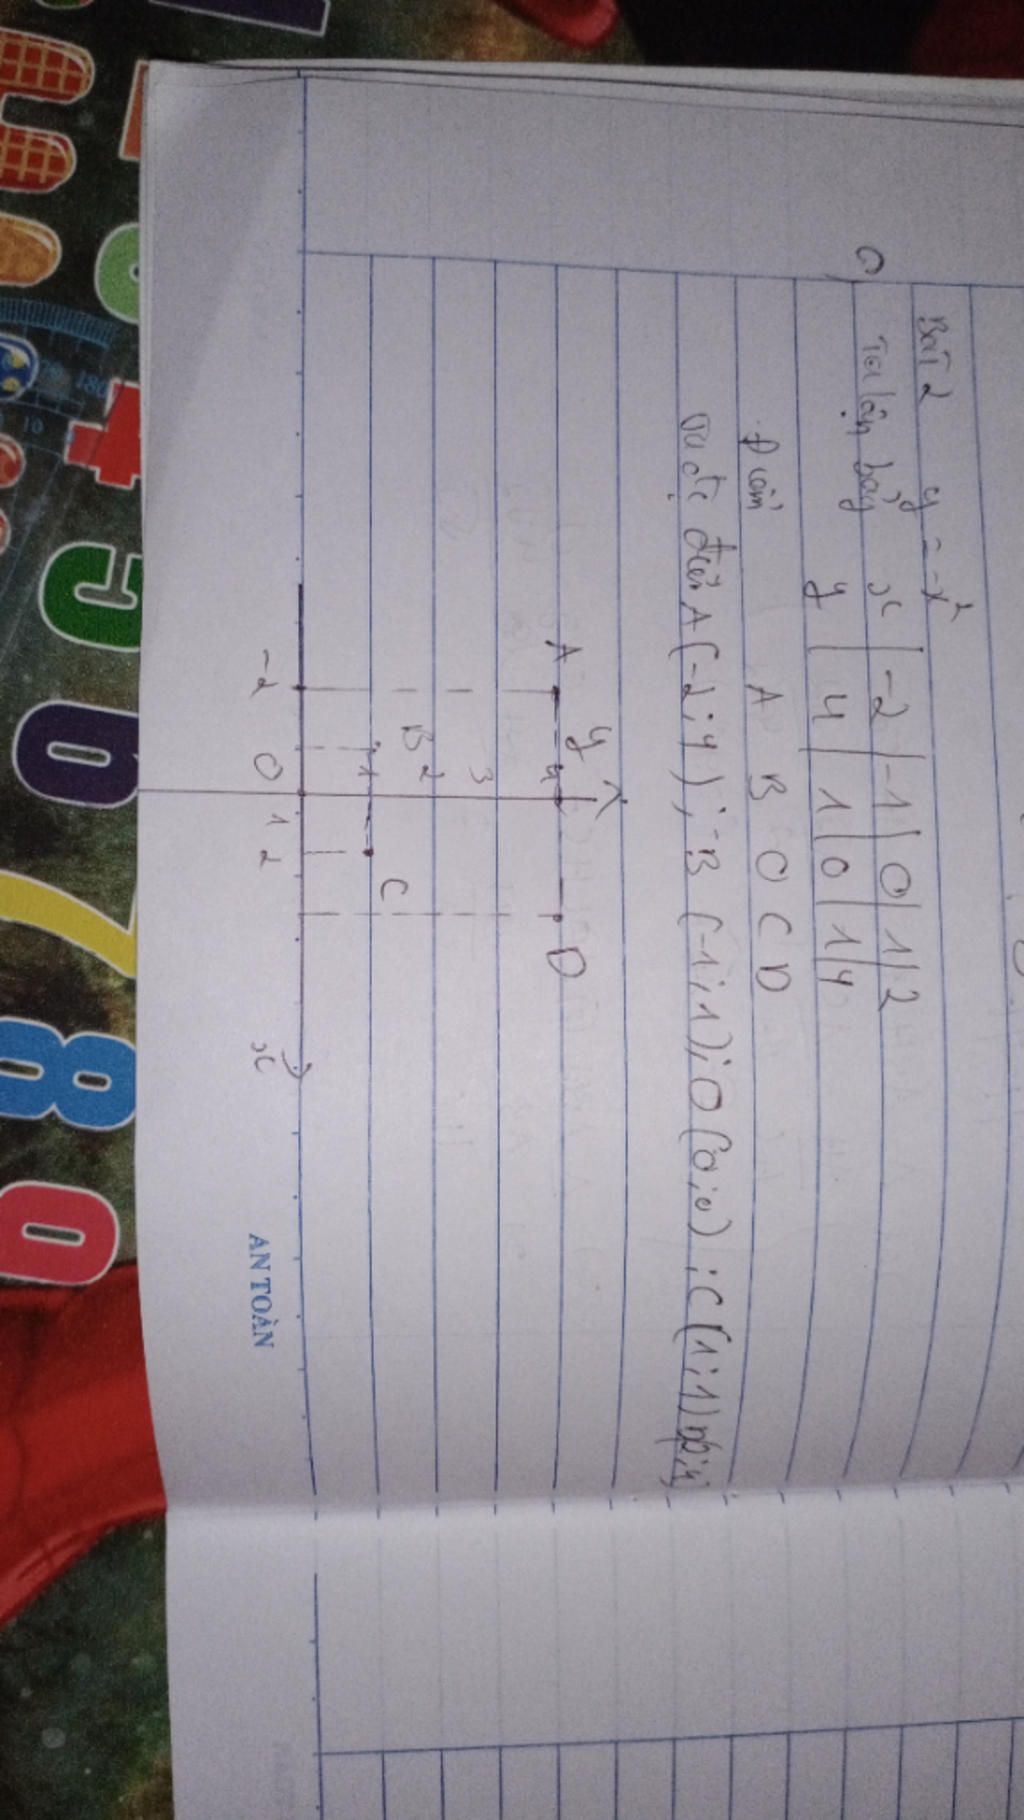 Bài 2 y = -x²
Ta lập bảg x | -2 | -1 | 0 | 1 | 2
y | 4 | 1 | 0 | 1 | 4
Điểm A B O C D
A(-2; 4); B(-1; 1); O(0; 0); C(1; 1)
y
A 4 D
3
2
B 1 C
-2 0 1 2 x
AN TOÀN